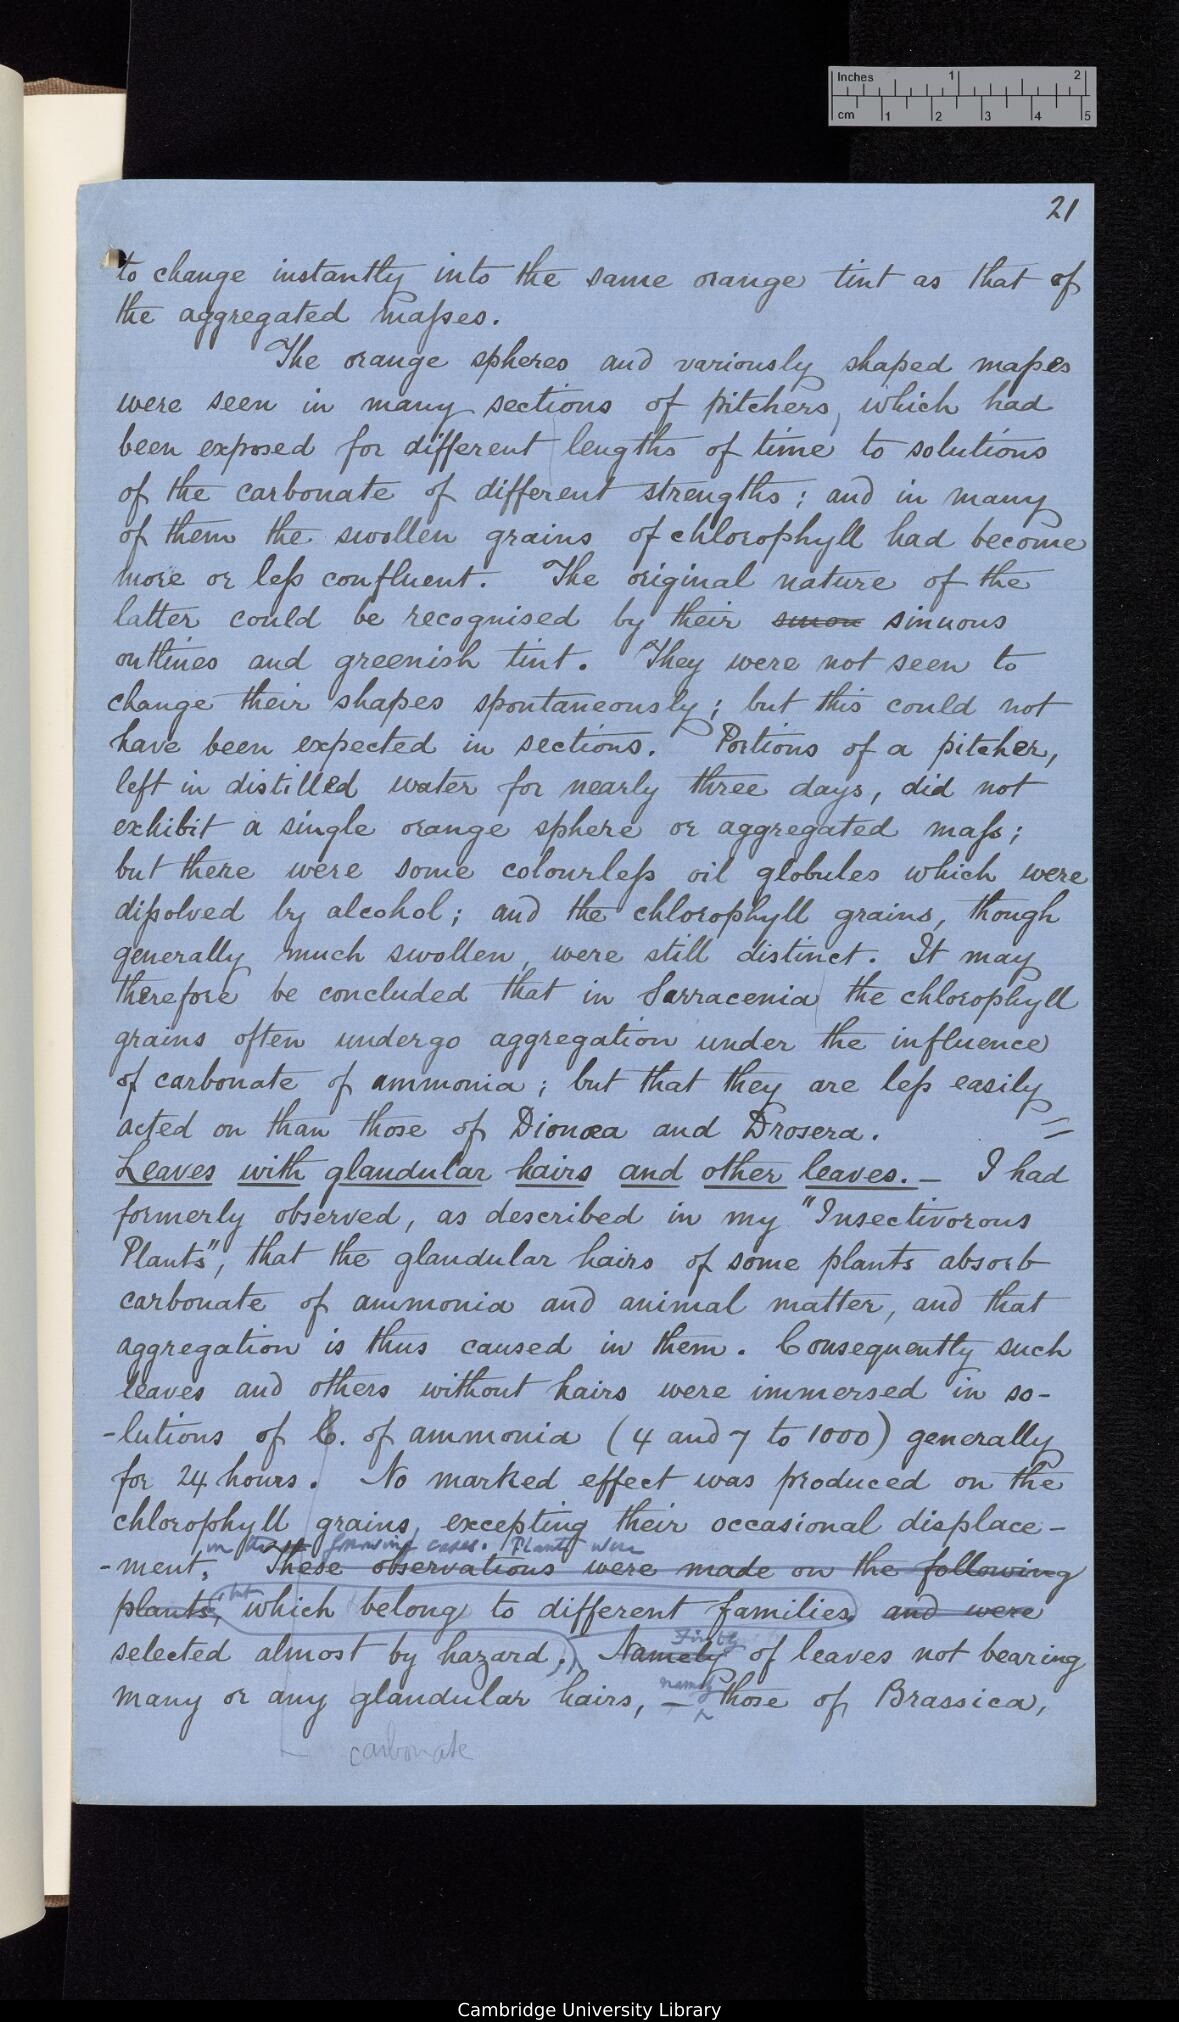 Inches 1 2
cm 1 2 3 4 5
21
to change instantly into the same orange tint as that of
the aggregated maſses.
The orange spheres and variously shaped maſses
were seen in many sections of pitchers, which had
been exposed for different lengths of time to solutions
of the carbonate of different strengths; and in many
of them the swollen grains of chlorophyll had become
more or leſs confluent. The original nature of the
latter could be recognised by their sinuous
outlines and greenish tint. They were not seen to
change their shapes spontaneously; but this could not
have been expected in sections. Portions of a pitcher,
left in distilled water for nearly three days, did not
exhibit a single orange sphere or aggregated maſs;
but there were some colourleſs oil globules which were
diſsolved by alcohol; and the chlorophyll grains, though
generally much swollen, were still distinct. It may
therefore be concluded that in Sarracenia the chlorophyll
grains often undergo aggregation under the influence
of carbonate of ammonia; but that they are leſs easily
acted on than those of Dionœa and Drosera.
Leaves with glandular hairs and other leaves. — I had
formerly observed, as described in my "Insectivorous
Plants", that the glandular hairs of some plants absorb
carbonate of ammonia and animal matter, and that
aggregation is thus caused in them. Consequently such
leaves and others without hairs were immersed in so-
-lutions of C. of ammonia (4 and 7 to 1000) generally
for 24 hours. No marked effect was produced on the
chlorophyll grains, excepting their occasional displace-
in the following cases. Plants were
-ment, These observations were made on the following
but
plants, which belong to different families, and were
Firstly
selected almost by hazard; Namely of leaves not bearing
namely
many or any glandular hairs, — those of Brassica,
carbonate
Cambridge University Library